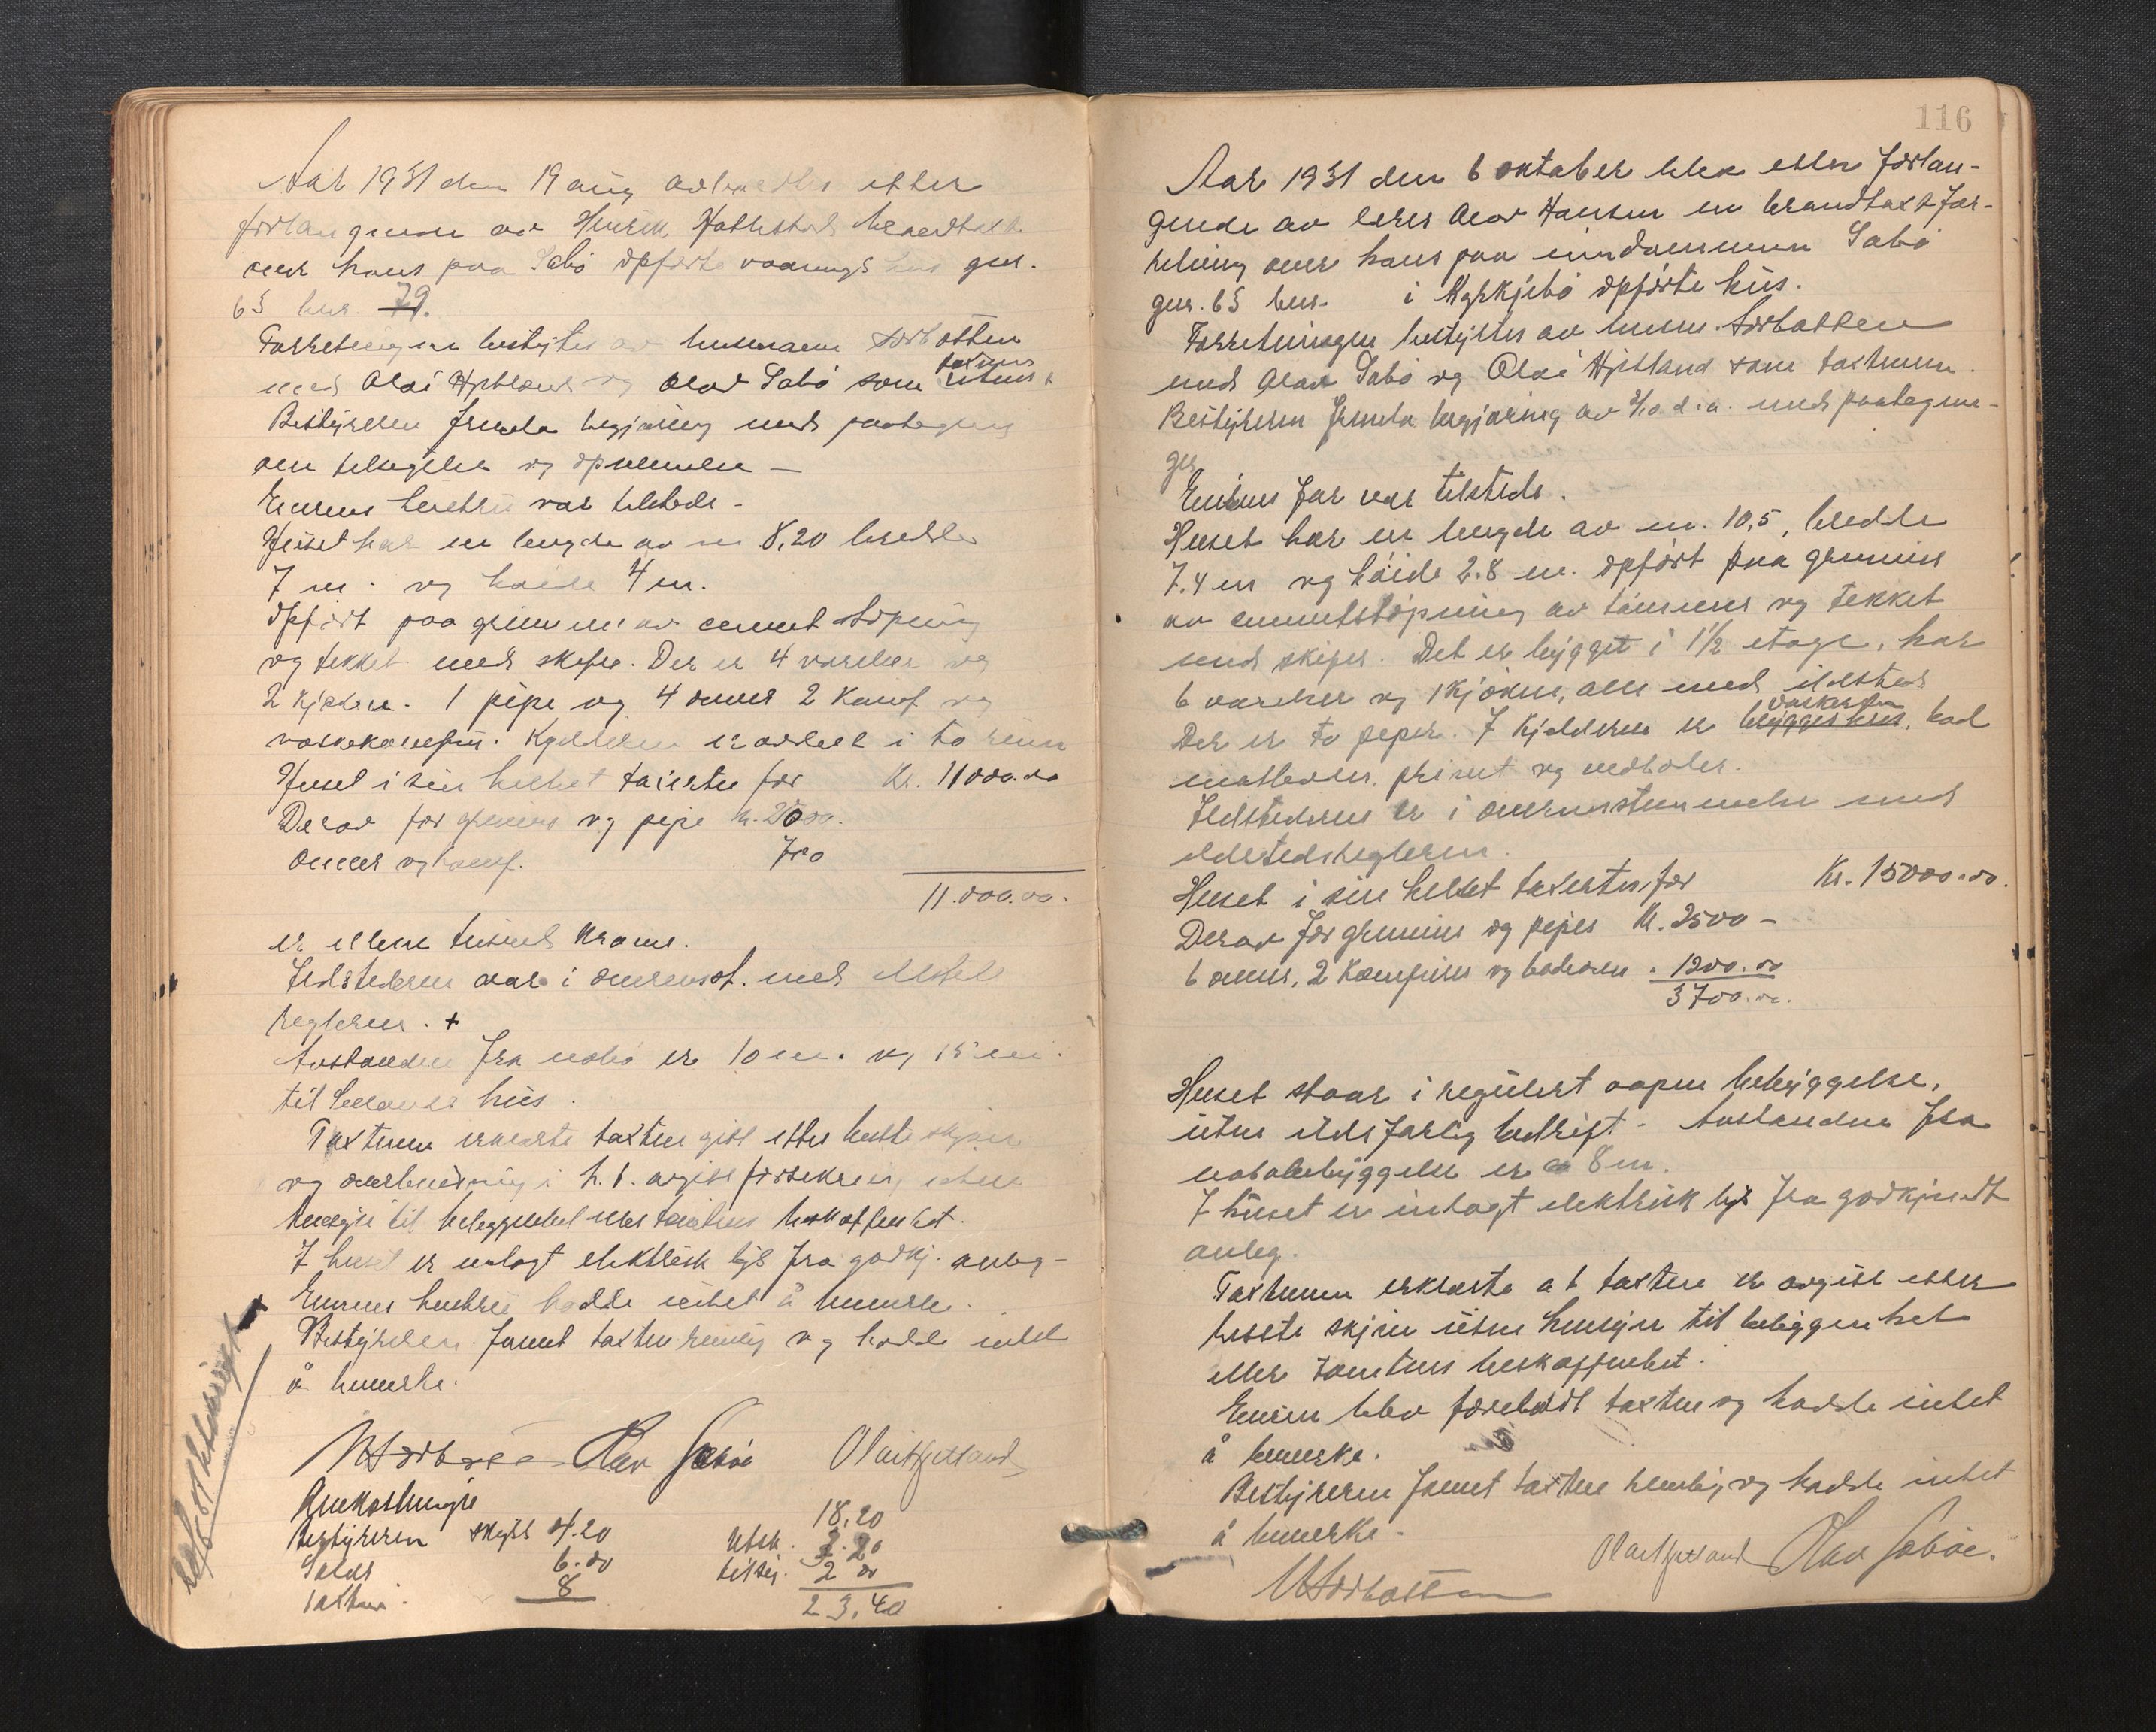 Aar 1931 den 19 aug avholdtes etter
forlangende av Henrik Hatlestad brandtakst
over hans paa Sæbø opførte vaaningshus gnr.
65 bnr. 79.
Forretningen bestyrtes av lensmann Nordbotten
med Olai Hjetland og Olav Sæbø som
taxmenn
Bestyreren fremla begjæring med paategning
om tilsigelse og opnevnelse —
Eierens hustru var tilstede -
Huset har en lengde av m 8,20 bredde
7 m. og høide 4 m.
Opført paa grunnmur av cement støpning
og tekket med skifer. Der er 4 værelser og
2 kjøkken. 1 pipe og 4 ovner 2 komf og
vaskekomfur. Kjelderen er avdelt i to rum
Huset i sin helhet taxertes for Kr. 11000.00
Derav for grunnmur og pipe kr. 2500.
Ovner og komf. 700
11.000.00.
er elleve tusend kroner.
Ildstederne var i overensst. med ildsted
reglerne. +
Avstanden fra nabo er 10 m. og 15 m.
til hus.
Taxtmenn erklærte taxten gitt etter beste skjøn
og overbevisning i h. t. avgitt forsikring uten
hensyn til beliggenhet eller tomtens beskaffenhet.
I huset er innlagt elektrisk lys fra godkj. anleg -
Eierens hustru hadde intet å bemerke.
Bestyreren fannt taxten rimelig og hadde intet
å bemerke.
Nordbotten Olav Sæbøe Olai Hjetland
Omkostninger
Bestyreren skyss 4.20 18,20
6.00 Utsk. 3.20
8 tilsig. 2 00
23,40
116
Aar 1931 den 6 oktober blev etter forlan-
gende av lærer Olav Hansen en brandtaxtfor-
retning over hans paa eiendommen Sæbø
gnr. 65 bnr. i Kyrkjebø opførte hus.
Forretningen bestyrtes av lensm. Nordbotten
med Olav Sæbø og Olai Hjetland som taxtmenn.
Bestyreren fremla begjæring av 2/10 d.a. med paategnin-
ger
Eierens far var tilstede.
Huset har en lengde av m. 10,5, bredde
7.4 m og høide 2.8 m. opført paa grunmur
av cementstøpning av tømmer og tekket
med skifer. Det er bygget i 1½ etage, har
6 værelser og 1 kjøkken, alle med ildsted
Der er to piper. I kjelderen er bryggerhus, bad
vaskerum
matboder, privet og vedboder.
Ildstederne er i overensstemmelse med
ildstedsreglerne.
Huset i sin helhet taxertes for Kr. 15000.00.
Derav for grunmur og piper Kr. 2500 -
6 ovner, 2 komfurer og badeovn " 1200.00
3700.00.
Huset staar i regulert aapen bebyggelse,
uten ildsfarlig bedrift - Avstanden fra
nabobebyggelse er 8 m.
I huset er innlagt elektrisk lys fra godkjendt
anleg.
Taxtmenn erklærte at taxten er avgitt etter
beste skjøn uten hensyn til beliggenhet
eller tomtens beskaffenhet.
Eieren blev forelæst taxten og hadde intet
å bemerke.
Bestyreren fannt taxten rimelig og hadde intet
å bemerke.
Nordbotten Olai Hjetland Olav Sæbøe.